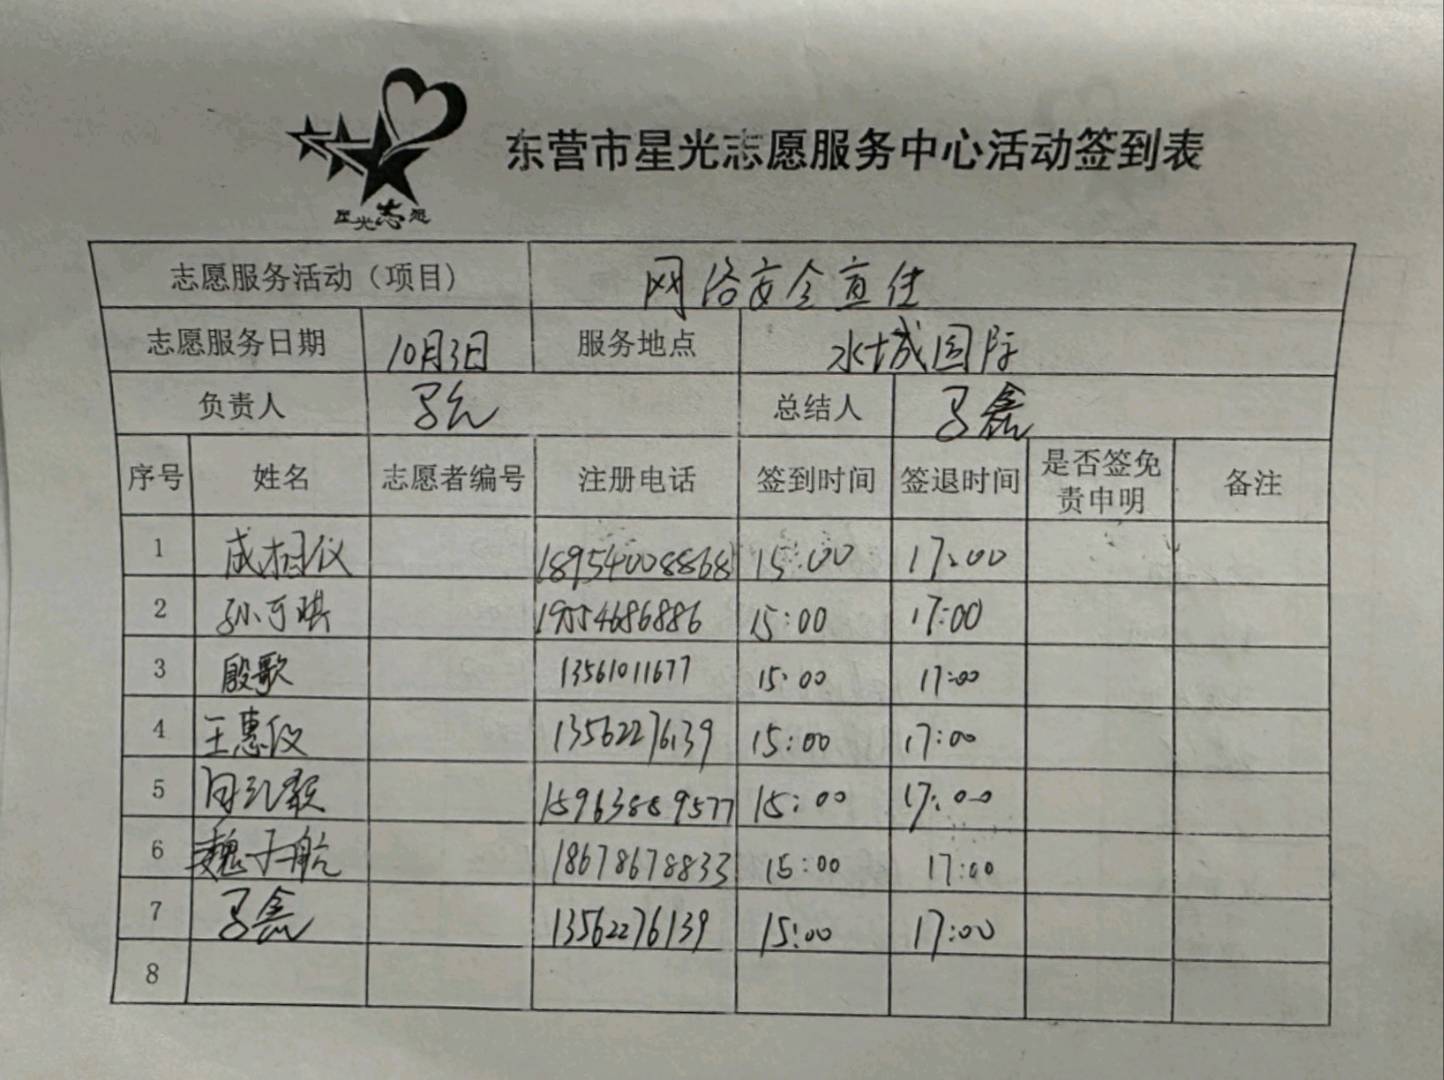 星光志愿
东营市星光志愿服务中心活动签到表
志愿服务活动（项目） 网络安全宣传
志愿服务日期 10月3日 服务地点 水城国际
负责人 总结人 马鑫
序号 姓名 志愿者编号 注册电话 签到时间 签退时间 是否签免责申明 备注
1 成相仪 18954008868 15:00 17:00
2 孙可琪 19554686886 15:00 17:00
3 殷歌 13561011677 15:00 17:00
4 王惠仪 13562276139 15:00 17:00
5 15963889577 15:00 17:00
6 魏子航 18678678833 15:00 17:00
7 马鑫 13562276139 15:00 17:00
8